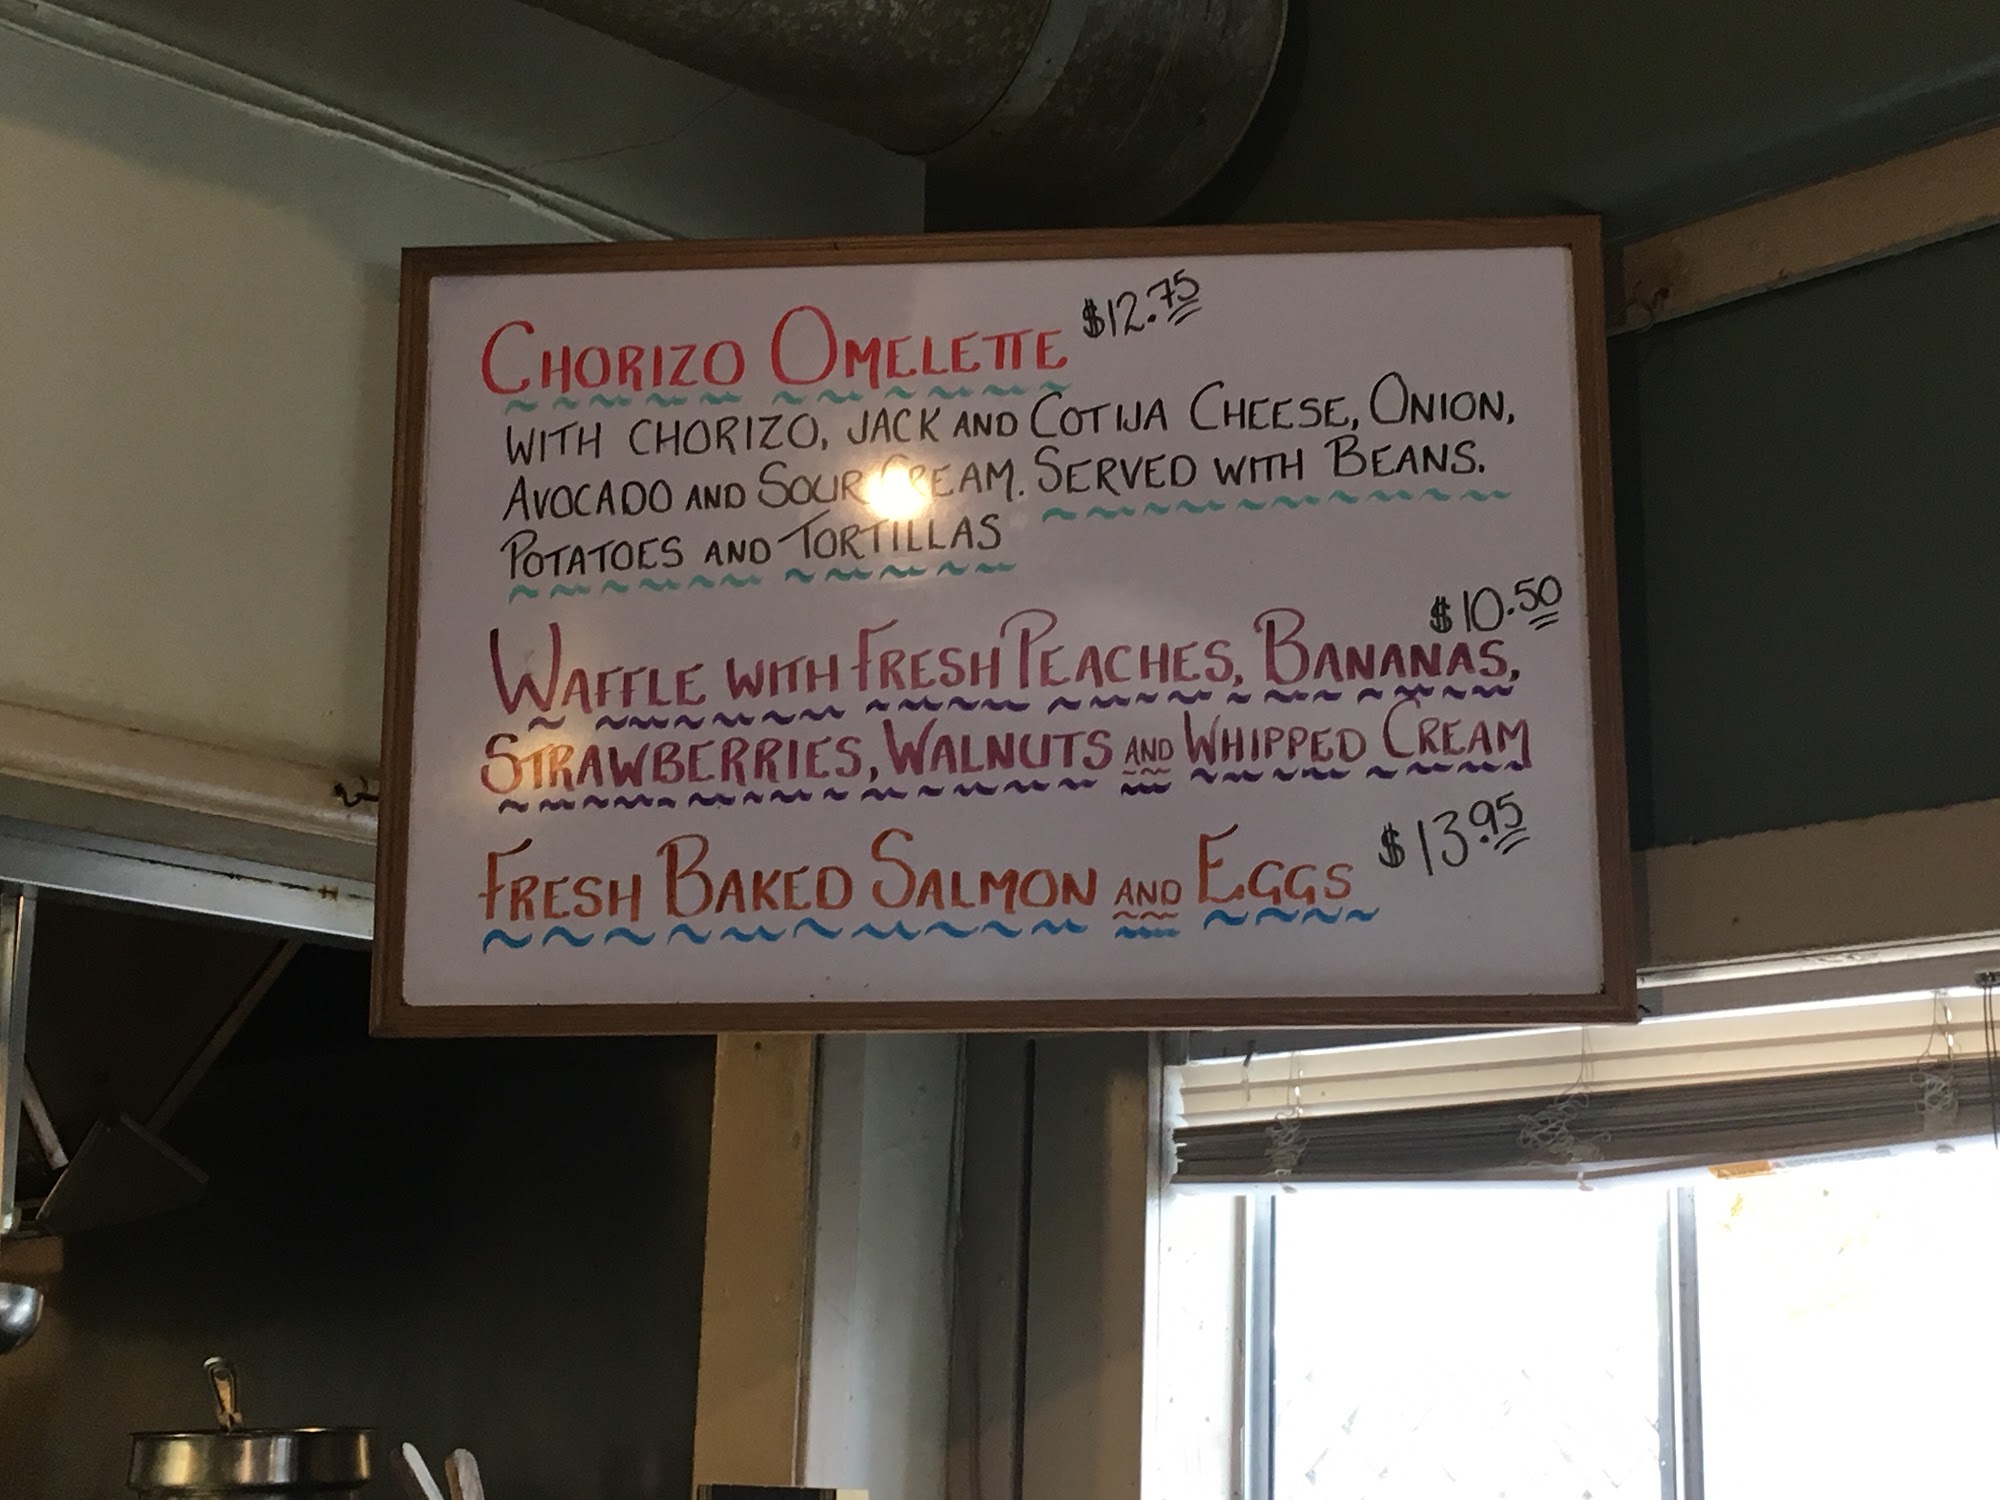 CHORIZO OMELETTE $12.75
WITH CHORIZO, JACK AND COTIJA CHEESE, ONION,
AVOCADO AND SOUR CREAM. SERVED WITH BEANS.
POTATOES AND TORTILLAS
$10.50
WAFFLE WITH FRESH PEACHES, BANANAS,
STRAWBERRIES, WALNUTS AND WHIPPED CREAM
FRESH BAKED SALMON AND EGGS $13.95